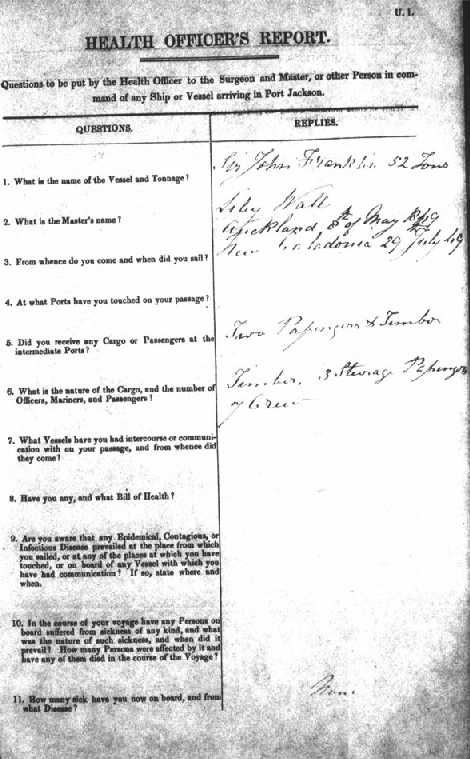 U. 1.
HEALTH OFFICER'S REPORT.
Questions to be put by the Health Officer to the Surgeon and Master, or other Person in com-
mand of any Ship or Vessel arriving in Port Jackson.
QUESTIONS.
REPLIES.
1. What is the name of the Vessel and Tonnage?
Sir John Franklin 52 Tons
2. What is the Master's name?
Wall
3. From whence do you come and when did you sail?
Auckland 8th of May 1849
New Caledonia 29 July 49
4. At what Ports have you touched on your passage?
5. Did you receive any Cargo or Passengers at the
intermediate Ports?
Two Passengers & Timber
6. What is the nature of the Cargo, and the number of
Officers, Mariners, and Passengers?
Timber. 3 Steerage Passengers
7 Crew
7. What Vessels have you had intercourse or communi-
cation with on your passage, and from whence did
they come?
8. Have you any, and what Bill of Health?
9. Are you aware that any Epidemical, Contagious, or
Infectious Disease prevailed at the place from which
you sailed, or at any of the places at which you have
touched, or on board of any Vessel with which you
have had communication? If so, state where and
when.
10. In the course of your voyage have any Persons on
board suffered from sickness of any kind, and what
was the nature of such sickness, and when did it
prevail? How many Persons were affected by it and
have any of them died in the course of the Voyage?
11. How many sick have you now on board, and from
what Disease?
None